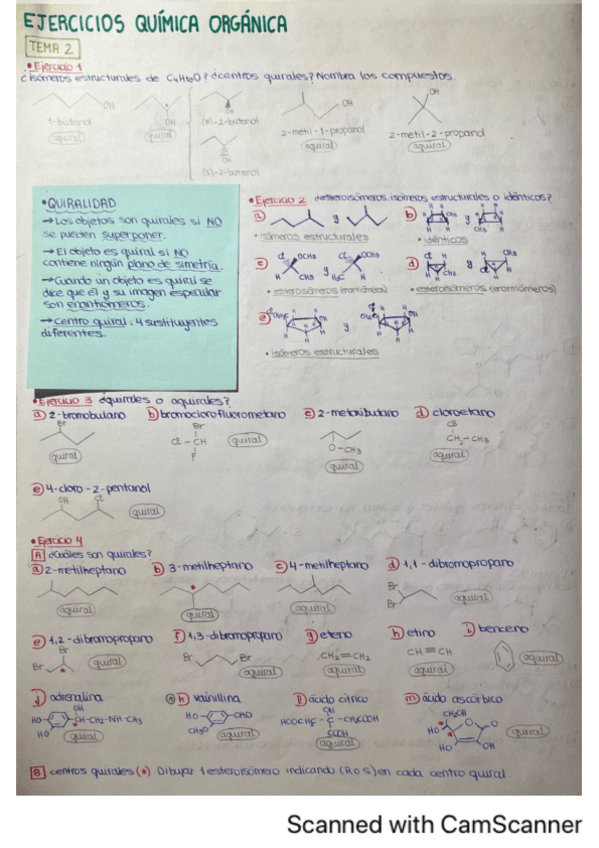 EJERCICIOS QUÍMICA ORGÁNICA
TEMA 2
• Ejercicio 1
¿Isómeros estructurales de C4H10O? ¿Centros quirales? Nombra los compuestos.
OH
OH
OH
OH
OH
1-butanol
quiral
quiral
(R)-2-butanol
(S)-2-butanol
2-metil-1-propanol
aquiral
2-metil-2-propanol
aquiral
• QUIRALIDAD
→ Los objetos son quirales si NO
se pueden superponer.
→ El objeto es quiral si NO
contiene ningún plano de simetría.
→ Cuando un objeto es quiral se
dice que él y su imagen especular
son enantiómeros.
→ Centro quiral: 4 sustituyentes
diferentes.
• Ejercicio 2 isómeros estructurales o idénticos?
a) y
• isómeros estructurales
b) y
• idénticos
c) Cl OCHs H CH3 y Cl OCH3
• esteroisómeros (enantiómeros)
d) y
• esteroisómeros (enantiómeros)
e) y
• isómeros estructurales
• Ejercicio 3 ¿quirales o aquirales?
a) 2-bromobutano b) bromoclorofluorometano c) 2-metoxibutano d) cloroetano
Br
quiral
Br
Cl - CH
F
quiral
O-CH3
quiral
Cl
CH2-CH3
aquiral
e) 4-cloro-2-pentanol
OH Cl
quiral
• Ejercicio 4
A ¿Cuáles son quirales?
a) 2-metilheptano b) 3-metilheptano c) 4-metilheptano d) 1,1-dibromopropano
aquiral
quiral
aquiral
Br
Br
aquiral
e) 1,2-dibromopropano f) 1,3-dibromopropano g) eteno h) etino i) benceno
Br
Br
quiral
Br Br
aquiral
CH2=CH2
aquiral
CH≡CH
aquiral
aquiral
j) adrenalina k) vainillina l) ácido cítrico m) ácido ascórbico
OH
HO CH-CH2-NH-CH3
HO
quiral
HO CHO
CH3O
aquiral
OH
HOOCH2C - C - CH2COOH
COOH
aquiral
CH2OH
HO
O O
HO OH
quiral
B centros quirales (*). Dibujar 1 esteroisómero indicando (R o S) en cada centro quiral.
Scanned with CamScanner